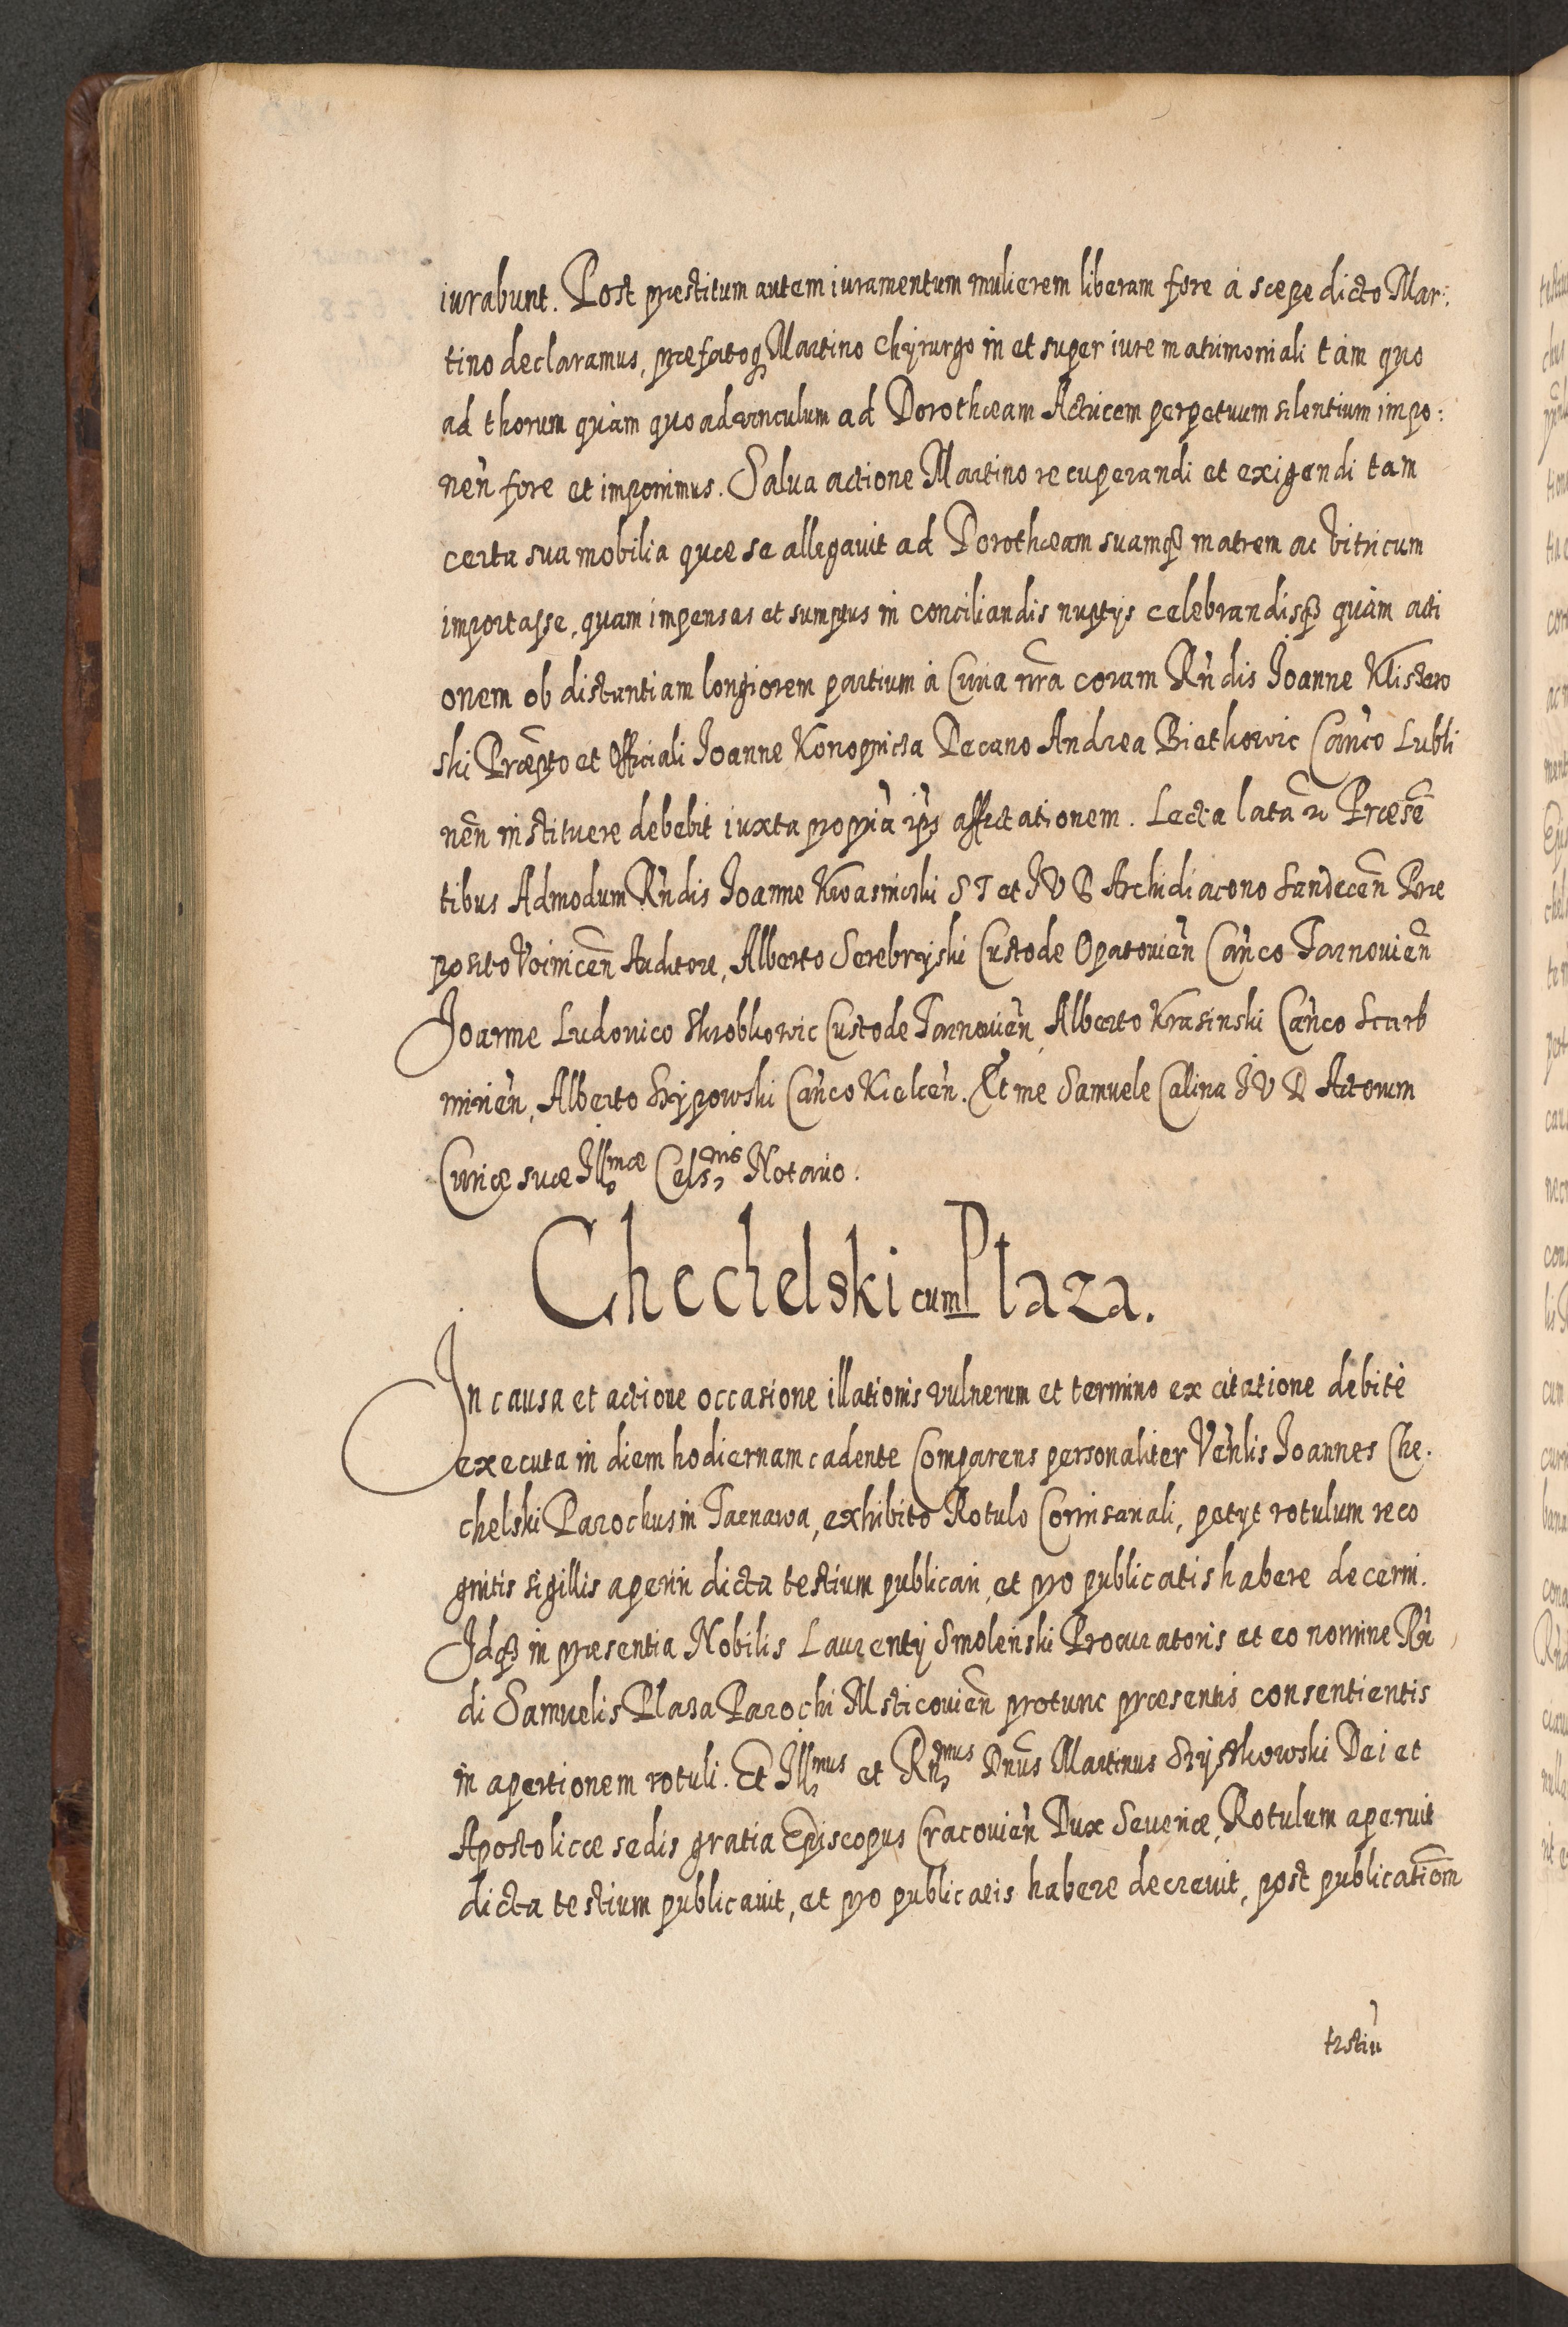 iurabunt. Post præstitum autem iuramentum mulierem liberam fore à sæpe dicto Mar:
tino declaramus, præfatoq Martino Chÿrurgo in et super iure matrimoniali tàm quo
ad thorum quàm quo ad vinculum ad Dorothæam Actricem perpetuum silentium impo:
neñ fore et imponimus. Salua actione Martino recuperandi et exigendi tam
certa sua mobilia quæ se allegauit ad Dorothæam suamq3 matrem ac vitricum
importasse, quam impensas et sumptus in conciliandis nuptijs celebrandisq3 quàm acti
onem ob distantiam longiorem partium à Curia nr̃a coram Rñdis Joanne Klistero
ski Præpto et Officiali Joanne Konopnicta Decano Andrea Biethowic Cañco Lubli
neñ instituere debebit iuxta propriã ip̃s affectationem. Lecta lata Præsẽ
tibus Admodum Rñdis Joanne Kwasnicski S T et I V D Archidiacono Sandeceñ Præ
posito Voiniceñ Auditore, Alberto Serebryski Custode Opatouieñ Cañco Tarnouieñ
Joanne Ludouico Skrobkowic Custode Tarnouieñ, Alberto Krasinski Cañco Scarb
mirieñ, Alberto Szÿpowski Cañco Kielceñ. Et me Samuele Calina I V D Actorum
Curiæ suæ Illmæ Celsnis Notario.
Chechelski cum Plaza.
In causa et actione occasione illationis vulnerum et termino ex citatione debitè
executa in diem hodiernam cadente Comparens personaliter Veñlis Joannes Che:
chelski Parochus in Tarnawa, exhibito Rotulo Comissariali, petyt rotulum reco
gnitis sigillis aperiri dicta testium publicari, et pro publicatis habere decerni.
Idq3 in præsentia Nobilis Laurentij Smoleński Procuratoris et eo nomine Rñ
di Samuelis Plaza Parochi Msticouieñ protunc præsentis consentientis
in apertionem rotuli. Et Illmus et Rñmus Dnus Martinus Szÿszkowski Dei et
Apostolicæ sedis gratia Episcopus Cracouieñ Dux Seueriæ, Rotulum aperuit
dicta testium publicauit, et pro publicatis habere decreuit, post publicatiom̃
testiũ